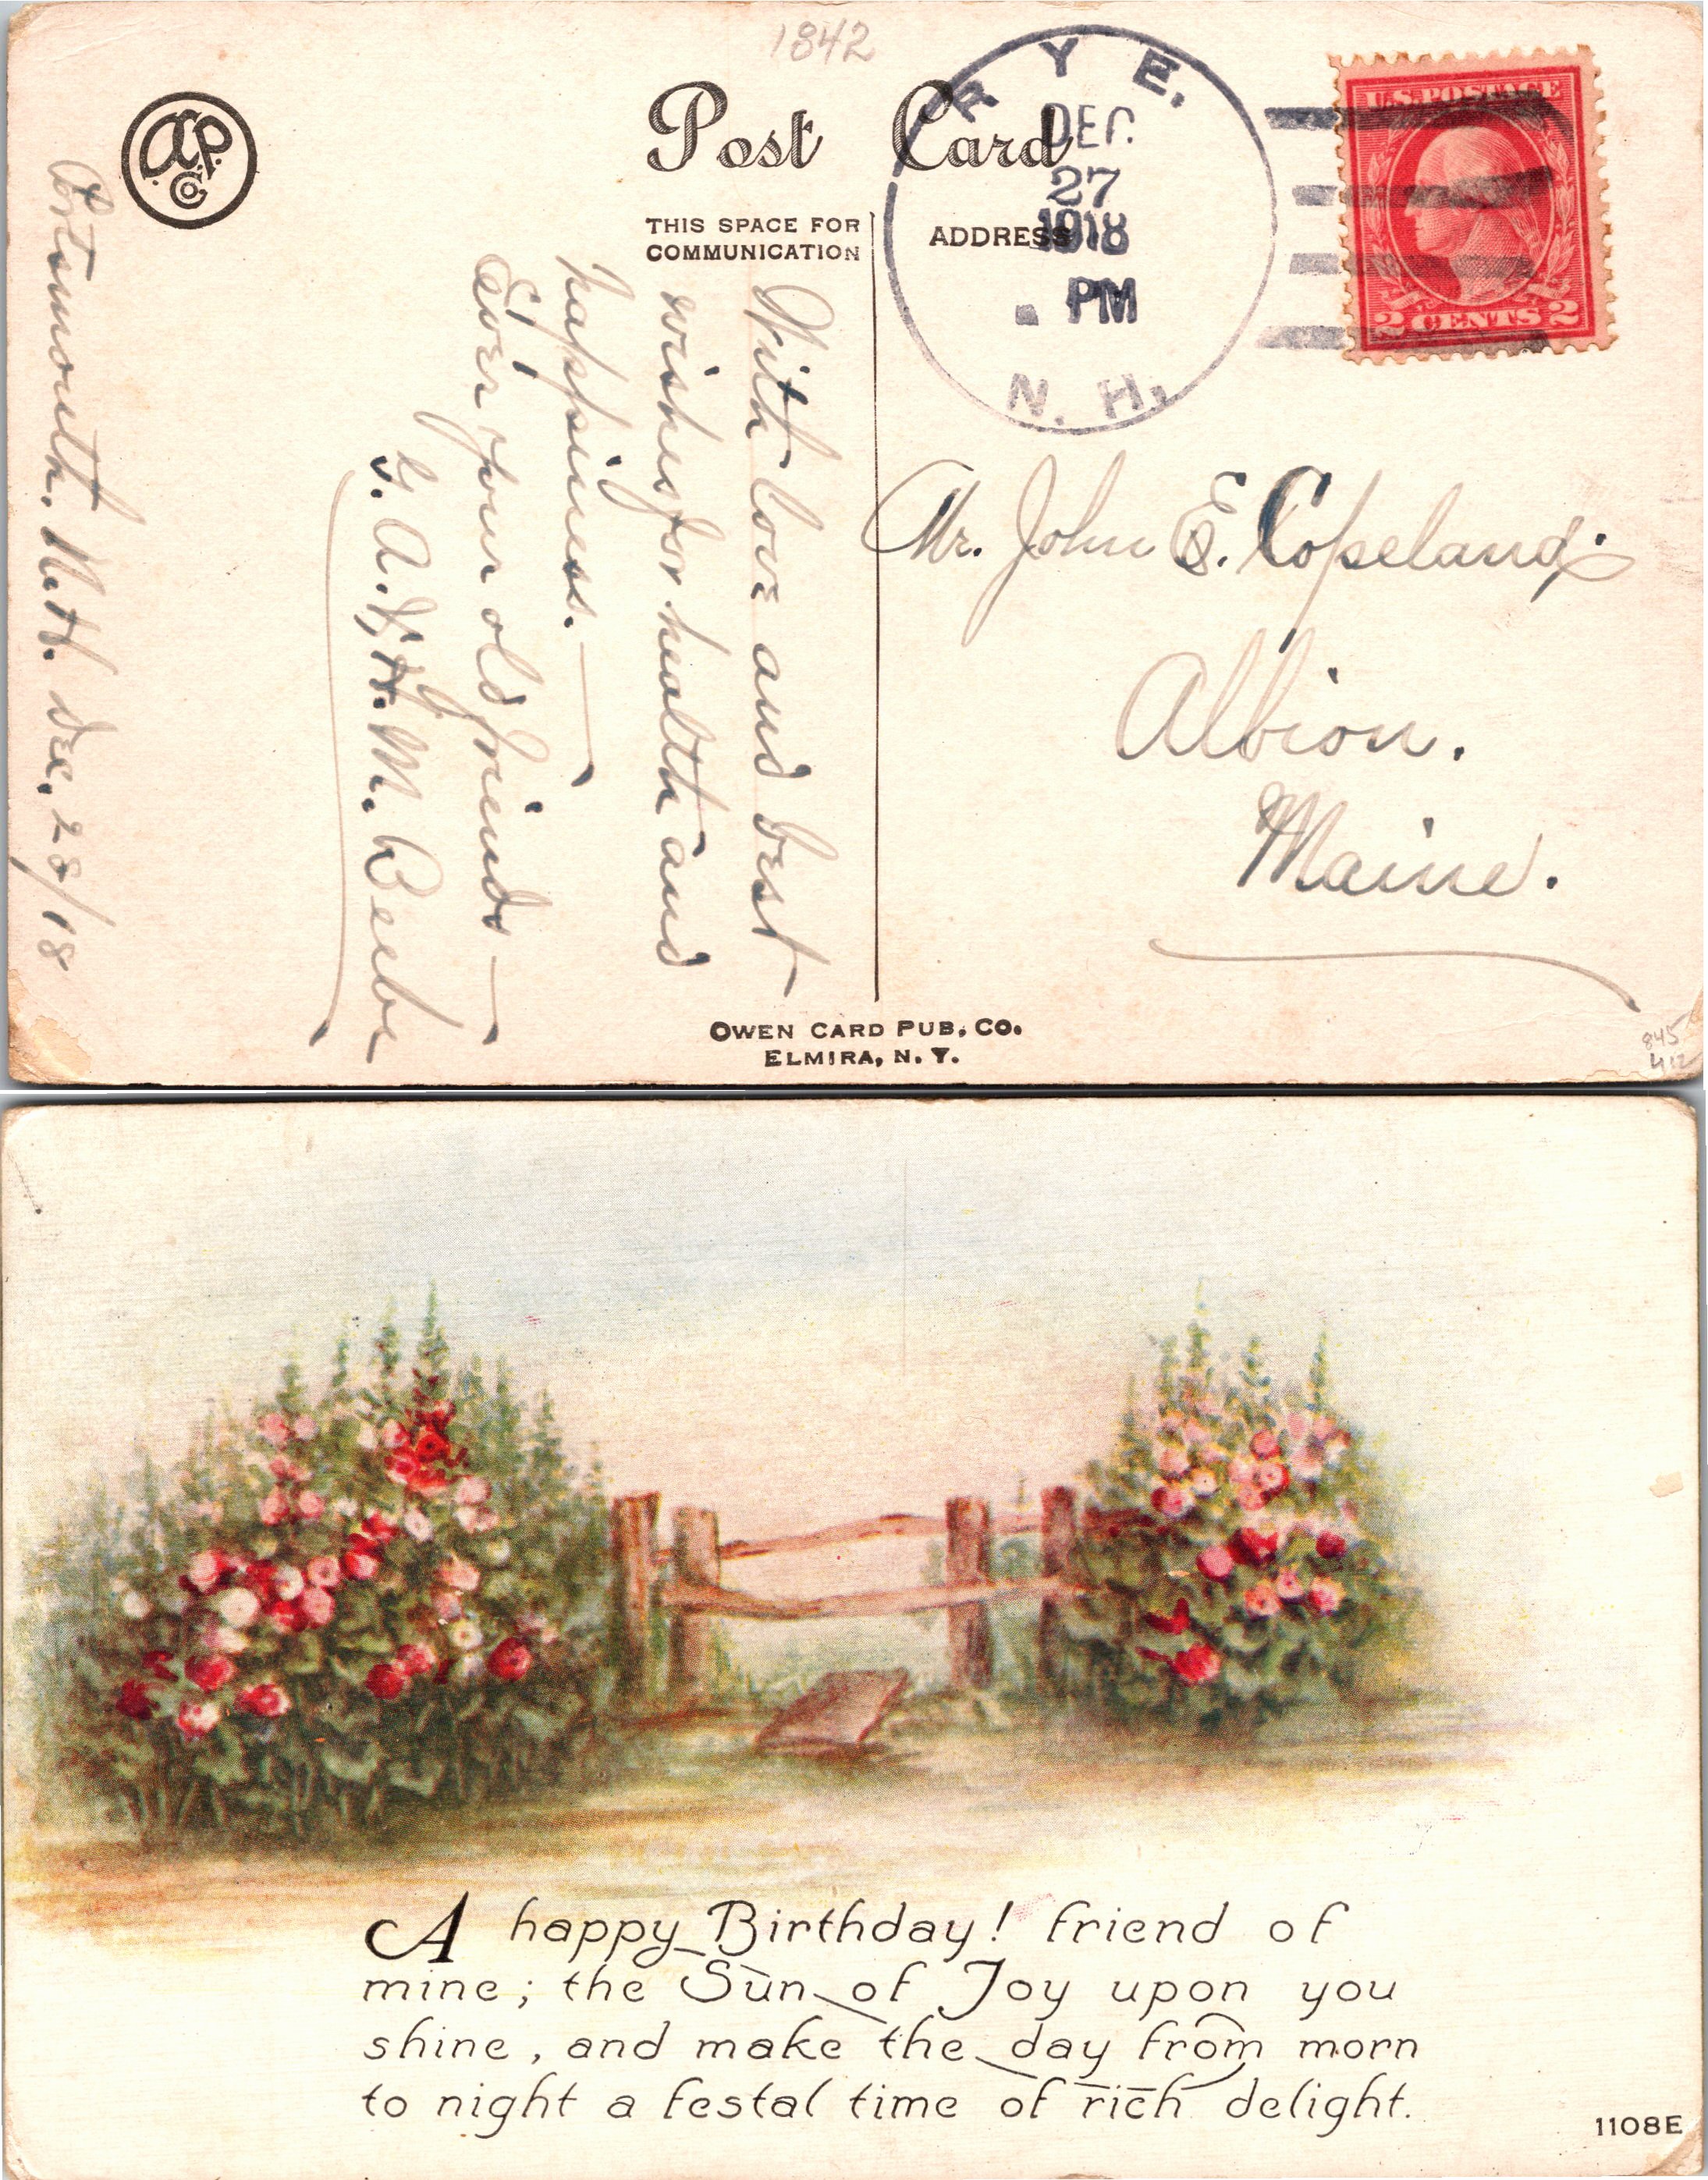 1842
Post Card
THIS SPACE FOR
COMMUNICATION
ADDRESS
RYE.
DEC.
27
1918
PM
N. H.
U.S. POSTAGE
2 CENTS 2
Mr. John E. Copeland.
Albion.
Maine.
With love and best
wishes for health and
happiness. —
Ever your old friends —
G. A. & H. M. Beebe
Portsmouth. N. H. Dec. 28/18
OWEN CARD PUB. CO.
ELMIRA, N. Y.
845
412
A happy Birthday! friend of
mine; the Sun of Joy upon you
shine, and make the day from morn
to night a festal time of rich delight.
1108E